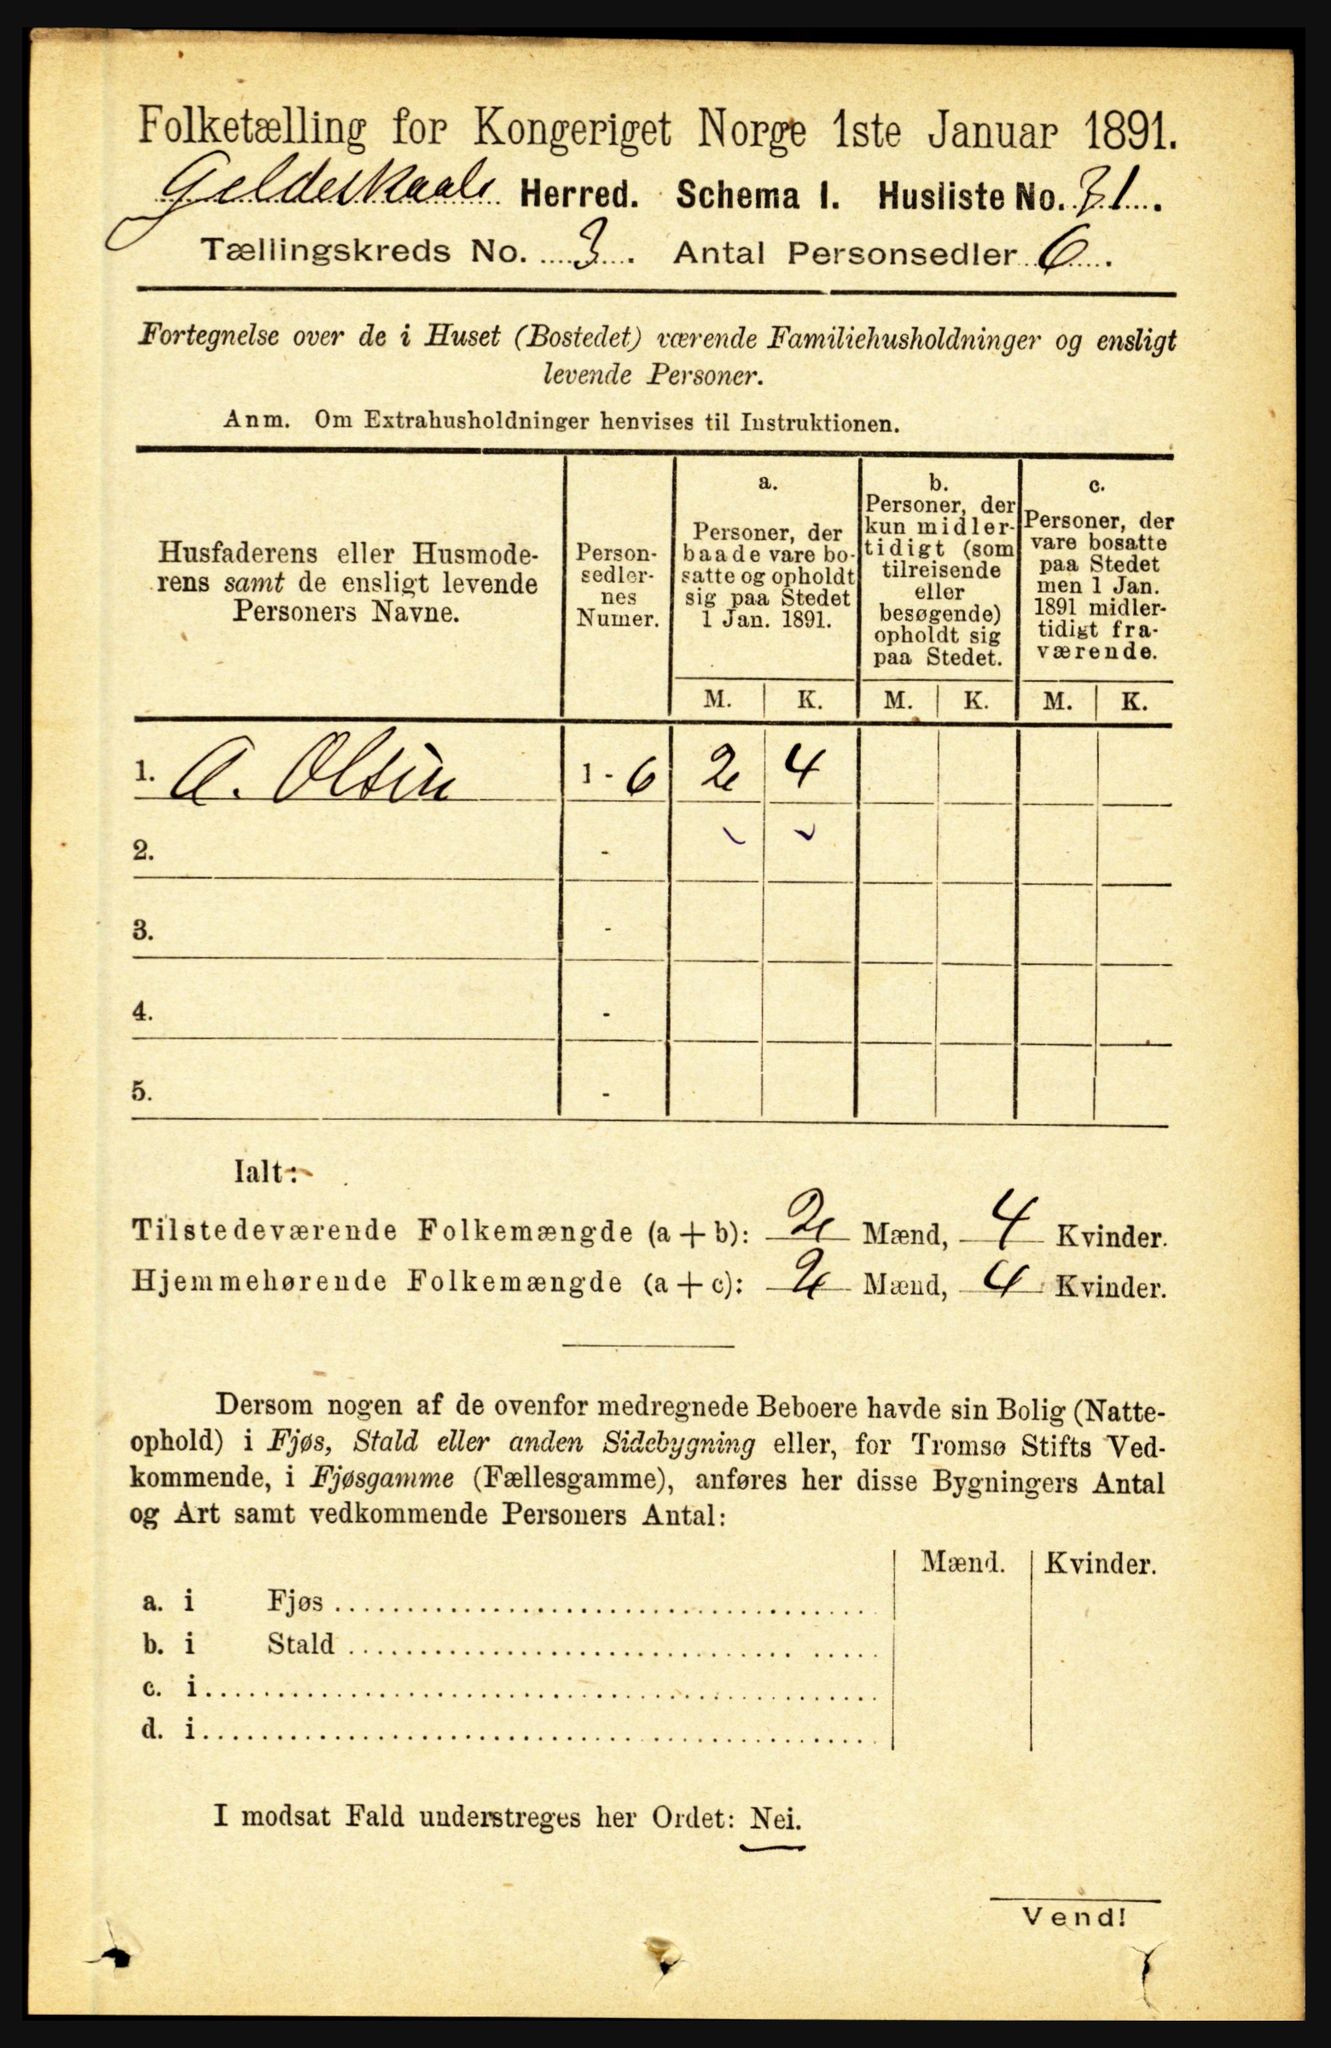 Folketælling for Kongeriget Norge 1ste Januar 1891.
Gildeskaal Herred. Schema I. Husliste No. 31.
Tællingskreds No. 3. Antal Personsedler 6.
Fortegnelse over de i Huset (Bostedet) værende Familiehusholdninger og ensligt
levende Personer.
Anm. Om Extrahusholdninger henvises til Instruktionen.
Husfaderens eller Husmode-
rens samt de ensligt levende
Personers Navne.
Person-
sedler-
nes
Numer.
a.
Personer, der
baade vare bo-
satte og opholdt
sig paa Stedet
1 Jan. 1891.
b.
Personer, der
kun midler-
tidigt (som
tilreisende
eller
besøgende)
opholdt sig
paa Stedet.
c.
Personer, der
vare bosatte
paa Stedet
men 1 Jan.
1891 midler-
tidigt fra-
værende.
M. K. M. K. M. K.
1. A. Olsen 1 - 6 2 4
2. -
3. -
4. -
5. -
Ialt:
Tilstedeværende Folkemængde (a + b): 2 Mænd, 4 Kvinder.
Hjemmehørende Folkemængde (a + c): 2 Mænd, 4 Kvinder.
Dersom nogen af de ovenfor medregnede Beboere havde sin Bolig (Natte-
ophold) i Fjøs, Stald eller anden Sidebygning eller, for Tromsø Stifts Ved-
kommende, i Fjøsgamme (Fællesgamme), anføres her disse Bygningers Antal
og Art samt vedkommende Personers Antal:
Mænd. Kvinder.
a. i Fjøs
b. i Stald
c. i
d. i
I modsat Fald understreges her Ordet: Nei.
Vend!